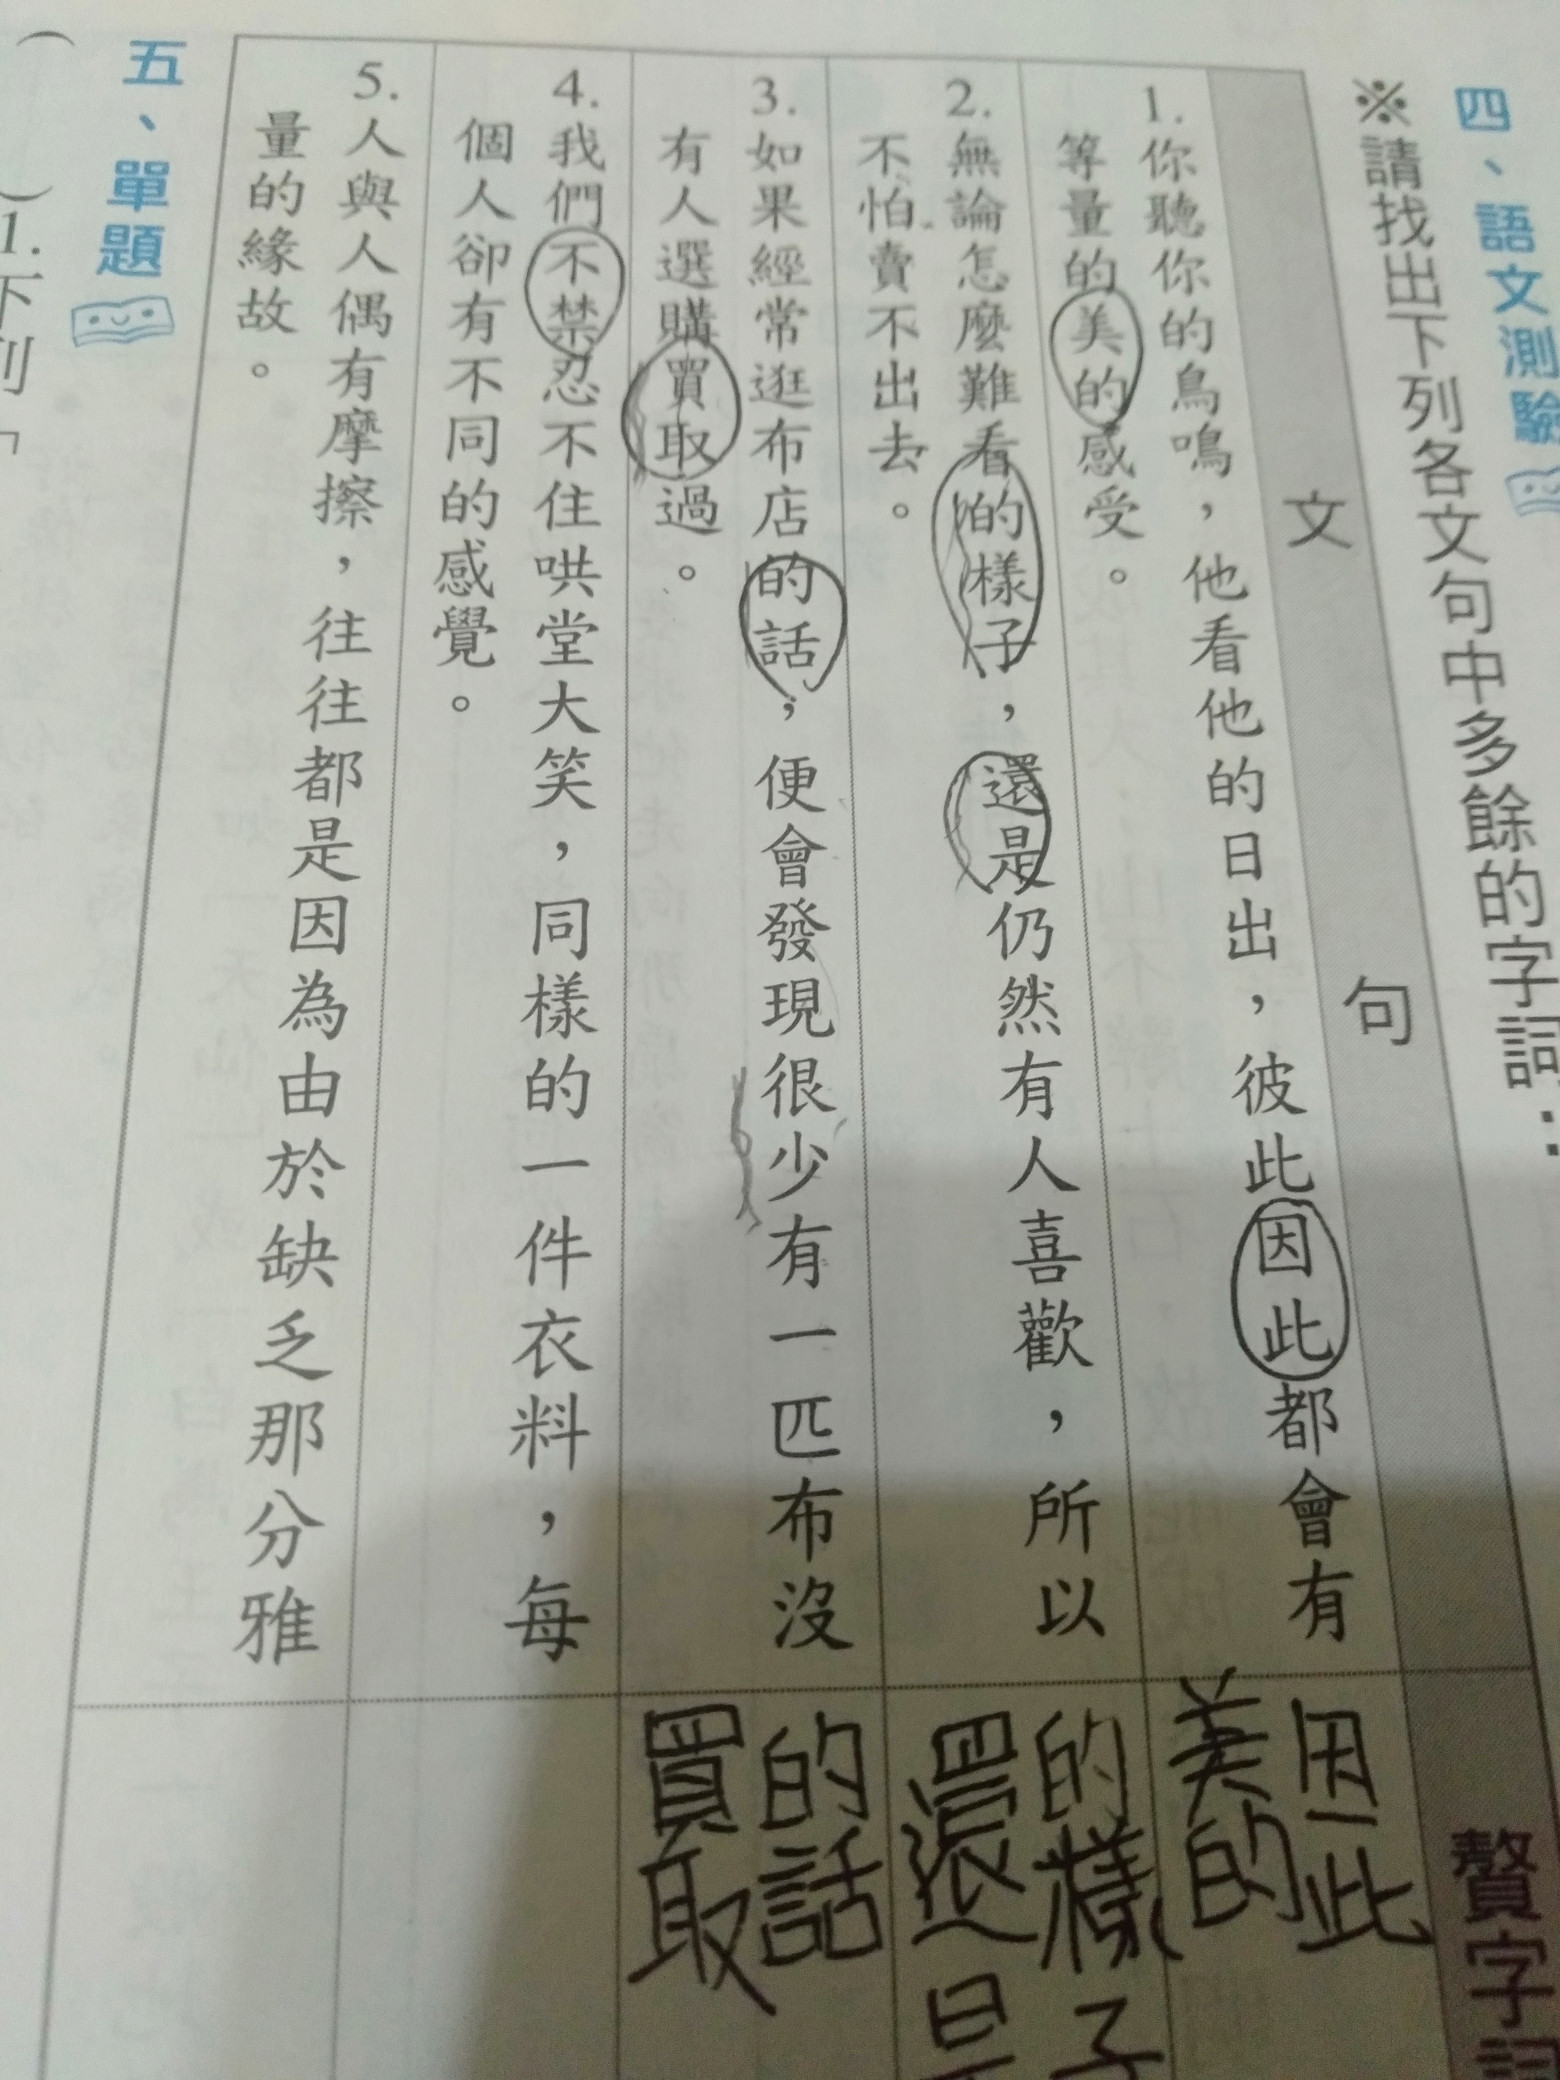 四、語文測驗
※請找出下列各文句中多餘的字詞：
文句
贅字詞
1.你聽你的鳥鳴，他看他的日出，彼此因此都會有
等量的美的感受。
因此
美的
2.無論怎麼難看的樣子，還是仍然有人喜歡，所以
不怕賣不出去。
的樣子
還是
3.如果經常逛布店的話，便會發現很少有一匹布沒
有人選購買取過。
的話
買取
4.我們不禁忍不住哄堂大笑，同樣的一件衣料，每
個人卻有不同的感覺。
5.人與人偶有摩擦，往往都是因為由於缺乏那分雅
量的緣故。
五、單題
( )1.下列「